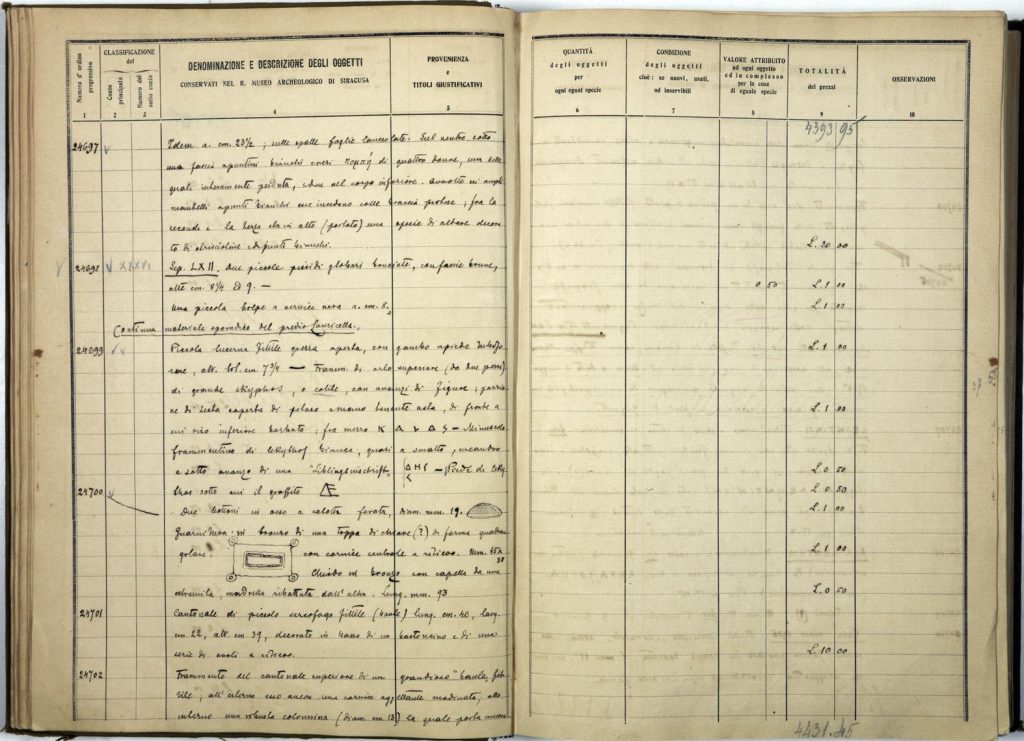 Numero d'ordine progressivo
CLASSIFICAZIONE del
Conto principale
Numero del sotto conto
DENOMINAZIONE E DESCRIZIONE DEGLI OGGETTI
CONSERVATI NEL R. MUSEO ARCHEOLOGICO DI SIRACUSA
PROVENIENZA
e
TITOLI GIUSTIFICATIVI
1 2 3 4 5
24697 Idem a. cm. 23½; sulle spalle foglie lanceolate. Sul ventre sotto
una fascia a puntini bianchi e neri πομπή di quattro donne, una delle
quali interamente perduta, e due nel corpo inferiore. Avvolte in ampi
mantelli a punti bianchi esse incedono colle braccia protese; fra la
seconda e la terza stavi alto (portato) una specie di altare decora-
to di striscioline e di punti bianchi.
24698 XXXVI Sep. LXII. Due piccole pissidi globari bruciate, con fascie brune,
alte cm. 8¼ ed 9. —
una piccola kolpe a vernice nera a. cm. 8.
Continua materiale sporadico del predio Lauricella.
24699 Piccola lucerna fittile grezza aperta, con gambo a piede
alt. tot. cm. 7¾ — Framm. di orlo superiore (da due pezzi)
di grande skyphos, o cotile, con avanzi di figure; porzio-
ne di testa coperta di petaso e mano tenente asta, di fronte a
cui viso inferiore barbato; fra mezzo Κ Α Λ Δ Σ — Minuscolo
frammentino di lekythos bianca, quasi a smalto, meandro
e sotto avanzo di una "Lieblingsinschrift" — Piede di leky-
thos sotto cui il graffito
24700 Due bottoni in osso a calotta forata, diam. mm. 19.
Guarnitura in bronzo di una toppa di chiave (?) di forma quadran-
golare. con cornice centrale a rilievo. mm. 45 x 38
Chiodo in bronzo con capella da una
estremità, ribattuta dall'altra. Lung. mm. 93
24701 Cantonale di piccolo sarcofago fittile (baule) lung. cm. 40, larg.
cm 22, alt. cm 39, decorato in basso di un bastoncino e di una
serie di ovoli a rilievo.
24702 Frammento del cantonale superiore di un grandioso "baule, fit-
tile; all'esterno esso ancora una cornice aggettante modinata, allo
interno una robusta colonnina (diam. cm. 13) la quale porta
QUANTITÀ
degli oggetti
per
ogni egual specie
6
CONDIZIONE
degli oggetti
cioè: se nuovi, usati,
od inservibili
7
VALORE ATTRIBUITO
ad ogni oggetto
ed in complesso
per le cose
di eguale specie
8
TOTALITÀ
dei prezzi
9
OSSERVAZIONI
10
4393 95
L. 20 00
0 50 L. 1 00
L. 1 00
L. 1 00
L. 1 00
L. 0 50
L. 0 50
L. 1 00
L. 1 00
L. 0 50
L. 10 00
4431.45